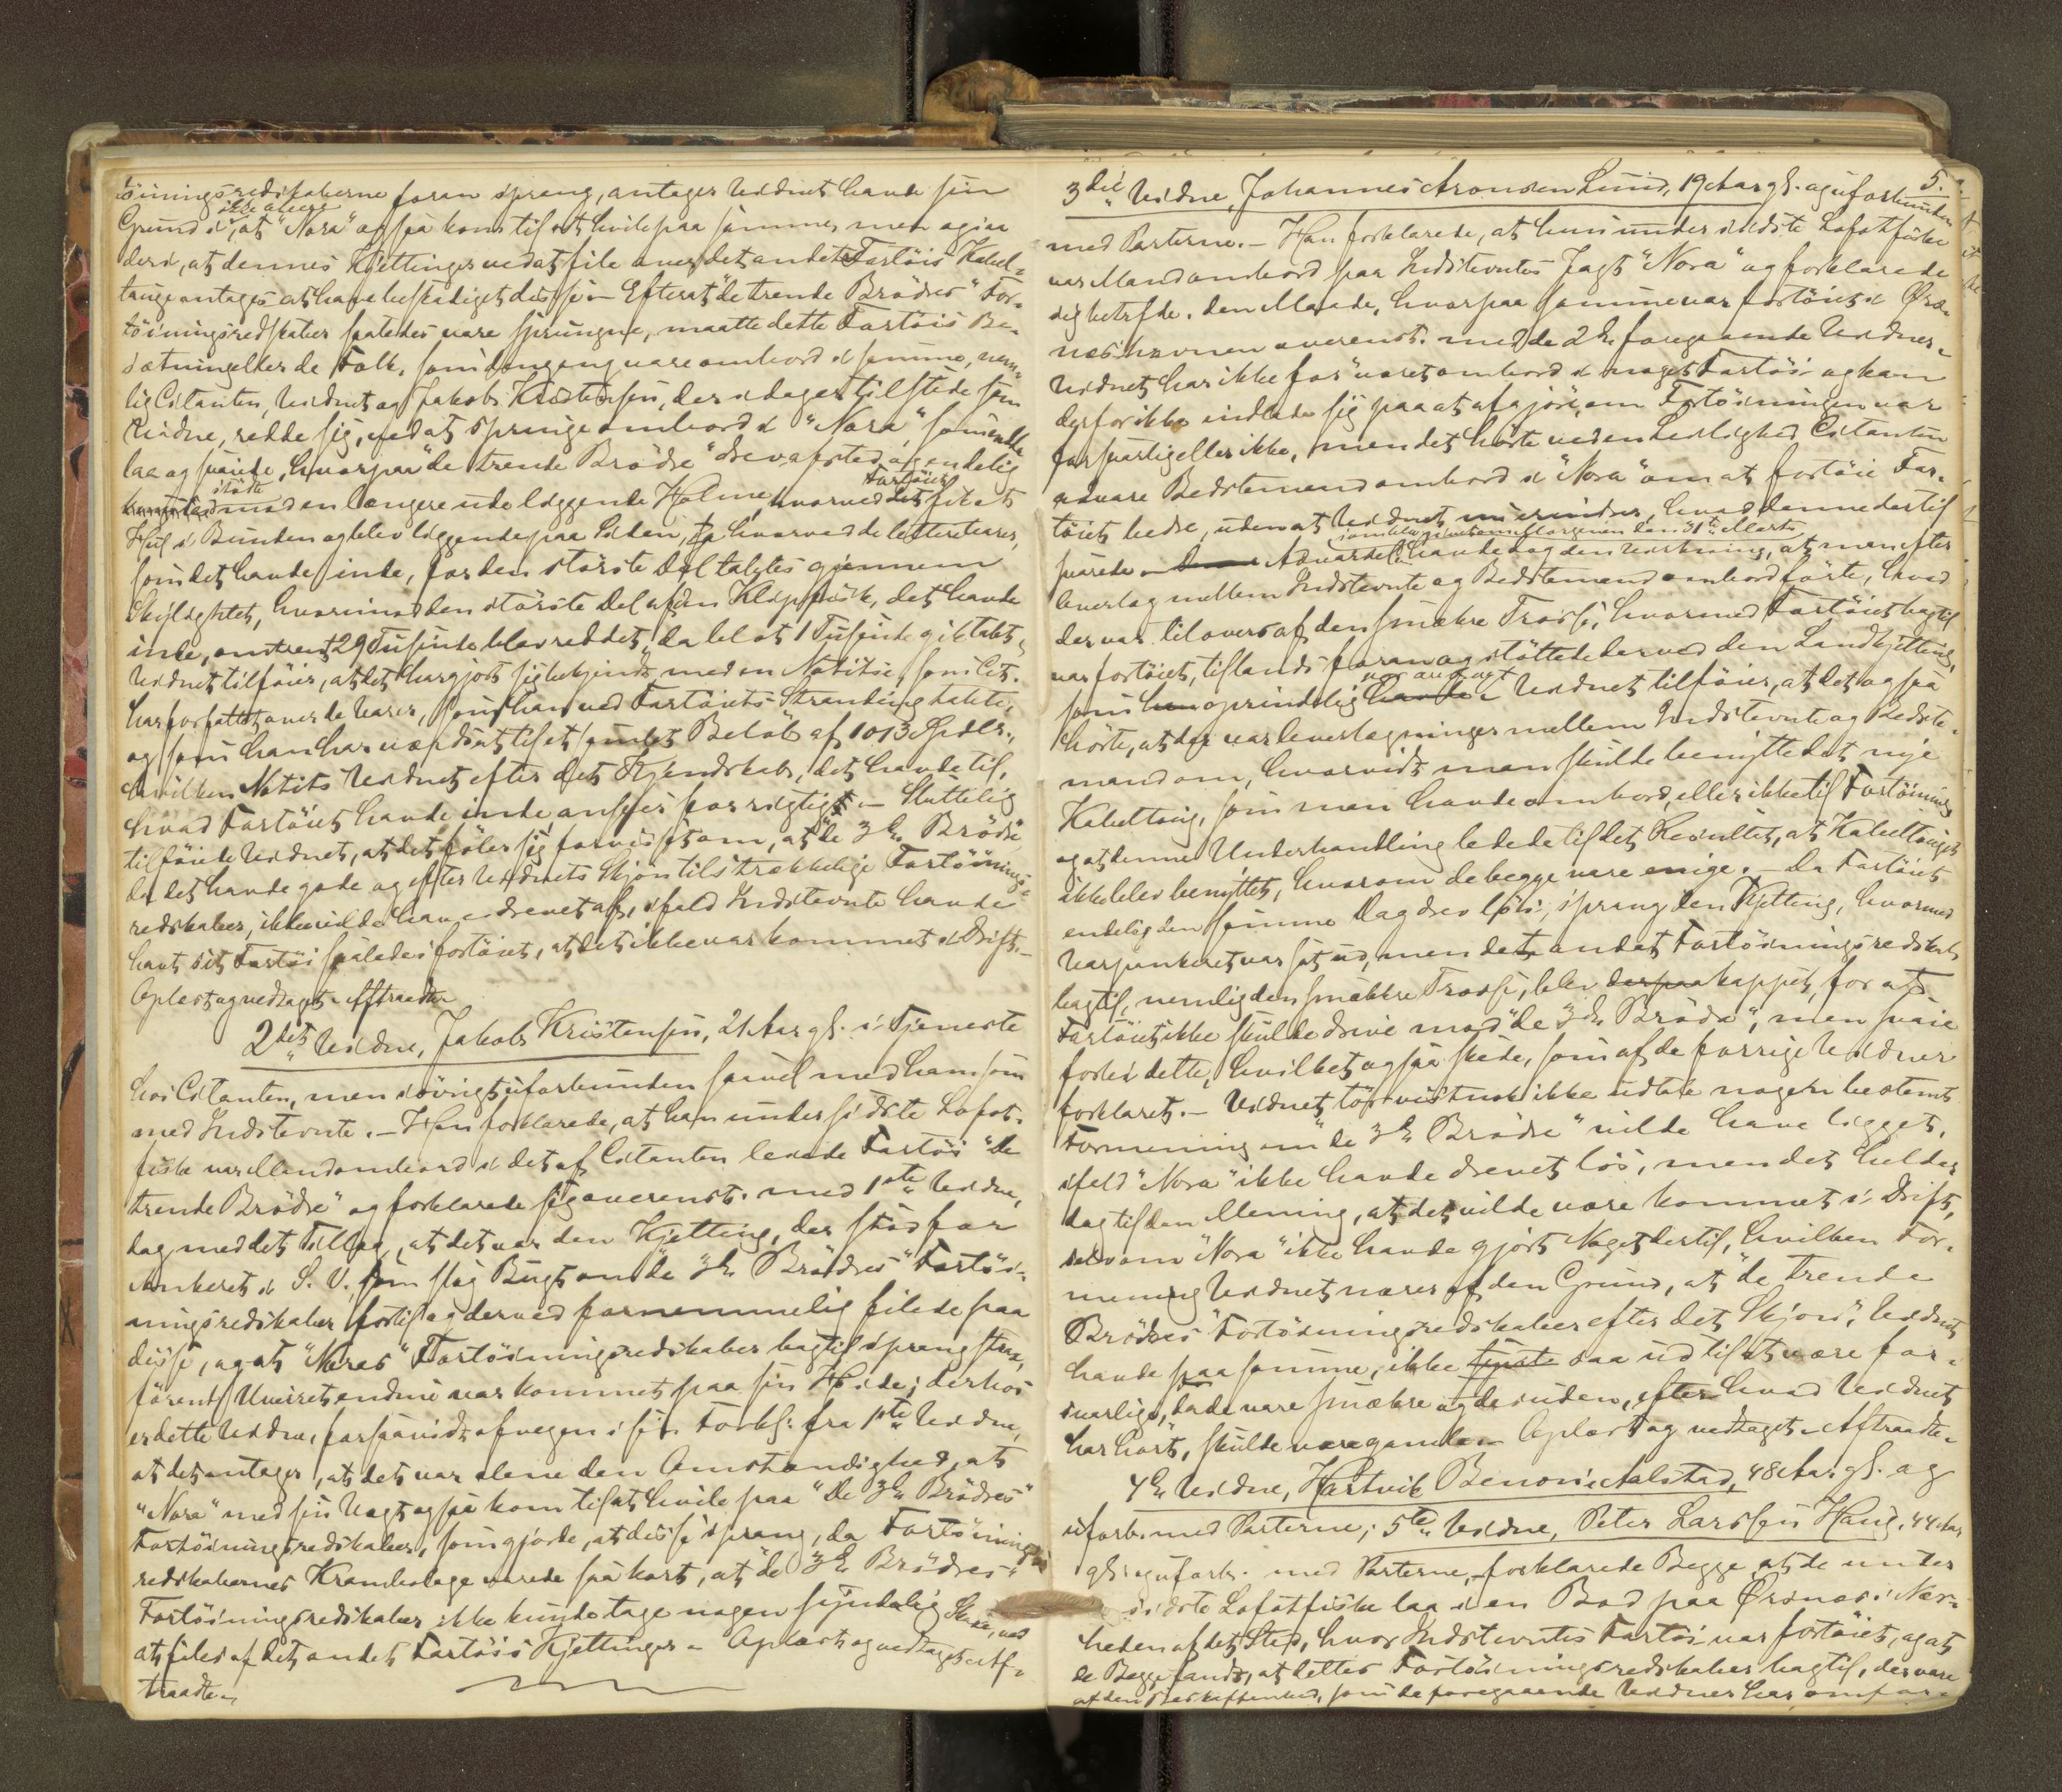 töiningsredskaberne foran sprang, antager Vidnet havde sin
Grund i, ikke alene at "Nora" ogsaa kom til at hvile paa samme, men ogsaa
deri, at dennes Kjettinger ved at file over det andet Fartöis Kabel-
tauge antages at have beskadiget disse. - Efterat "de trende Brödres" For-
töiningsredskaber saaledes vare sprungne, maatte dette Fartöis Be-
sætning eller de Folk, som dengang vare ombord i samme, nem-
lig Citanten, Vidnet og Jakob Kristensen, der idag er tilstede som
Vidne, redde sig, ved at springe ombord i "Nora" som endnu
laa og svaiede, hvorpaa "de trende Brödre" drev afsted, og endelig
stödte mod en længere ude liggende Holme, hvorved Fartöiet fik et
Hul i Bunden og blev liggende paa Siden, hvorved de lettere Varer,
som det havde inde, for den störste Del taltes gjennem
Skylightet, hvorimod den störste Del af den Klipfisk, det havde
inde, omtrent 29 Tusinde blev reddet, da blot 1 Tusinde gik tabt.
Vidnet tilföier, at det har gjort sig bekjendt med en Notits, som Cit.
har forfattet over de Varer, som han ved Fartöiets Stranding tabte,
og som han har værdsat til et samlet Belöb af 1013 Spdlr.,
hvilken Notits Vidnet efter det Kjendskab, det havde til,
hvad Fartöiet havde inde anser for rigtigt. - Sluttelig
tilföiede Vidnet, at det föler sig forvisset om, at "de 3de Brödre"
da det havde gode og efter Vidnets Skjön tilstrækkelige Fortöinings-
redskaber, ikke vilde have drevet af, ifald Indstevnte havde
havt sit Fartöi saaledes fortöiet, at det ikke var kommet i Drift. -
Oplæst og vedtaget. Aftraadte
2det Vidne, Jakob Kristensen, 21 Aar gl. i Tjeneste
hos Citanten, men iövrigt uforbunden saavel med ham som
med Indstevnte. - Han forklarede, at han under sidste Lofot-
fiske var Mand ombord i det af Citanten leiede Fartöi "de
trende Brödre" og forklarede sig overenst. med 1ste Vidne,
dog med det Tillæg, at det var den Kjetting, der stod for
Ankeret i S. V., som slog Bugt om "de 3de Brödres" Fortöi-
ningsredskaber fortil og derved fornemmelig filede paa
disse, og at "Noras" Fortöiningsredskaber bagtil sprang strax,
förend Uveiret endnu var kommet paa sin Höide; derhos
er dette Vidne, forsaavidt afvegen i sin Forkl. fra 1ste Vidne,
at det antager, at det var alene den Omstændighed, at
"Nora" med sin Vægt ogsaa kom til at hvile paa "de 3de Brödres"
Fortöiningsredskaber, som gjorde, at disse sprang, da Fortöinings-
redskabernes Krambolage varede saa kort, at "de 3de Brödres"
Fortöiningsredskaber ikke kunde tage nogen synderlig Skade, ved
at files af det andet Fartöis Kjettinger. - Oplæst og vedtaget. Af-
traadte.
5.
3die Vidne, Johannes Aronsen Lund, 19 Aar gl. og uforbunden
med Parterne. - Han forklarede, at han under sidste Lofotfiske
var Mand ombord paa Indstevntes Jagt "Nora" og forklarede
sig betrfde. den Maade, hvorpaa samme var fortöiet i Örs-
næshavnen overenst. med de 2de foregaaende Vidner.
Vidnet har ikke för været ombord i noget Fartöi og kan
derfor ikke indlade sig paa at afgjöre, om Fortöiningen var
forsvarlig eller ikke, men det hörte ved en Leilighed Citanten
advare Bedstemand ombord i "Nora" om at fortöie Far-
töiet bedre, uden at Vidnet erindrer, hvad denne dertil
svarede. - Advarselen som blev givet om Morgenen den 1ste Marts, havde dog den Virkning, at man efter
Overlæg mellem Indstevnte og Bedstemand ombord förte, hvad
der var tilovers af den smækre Trosse, hvormed Fartöiet bagtil
var fortöiet, tillands foran og stöttede derved den Landkjetting,
som oprindelig var anbragt. - Vidnet tilföier, at det ogsaa
hörte, at der var Overlægninger mellem Indstevnte og Bedste-
mand om, hvorvidt man skulde benytte det nye
Kabeltaug, som man havde ombord, eller ikke til Fortöining,
og at denne Underhandling ledede til det Resultat, at Kabeltauget
ikke blev benyttet, hvorom de begge vare enige. - Da Fartöiet
endelig den samme Dag drev lös, sprang den Kjetting, hvormed
Varpankeret var sat ud, men det andet Fortöiningsredskab
bagtil, nemlig den smækkre Trosse, blev derpaa kappet, for at
Fartöiet ikke skulde drive mod "de 3de Brödre", men svaie
forbi dette, hvilket ogsaa skede, som af de forrige Vidner
forklaret. - Vidnet tör vistnok ikke udtale nogen bestemt
Formening om "de 3de Brödre" vilde have ligget,
ifald "Nora" ikke havde drevet lös, men det helder
dog til den Mening, at det vilde være kommet i Drift,
selv om "Nora" ikke havde gjort Noget dertil, hvilken For-
mening Vidnet nærer af den Grund, at "de trende
Brödres" Fortöiningsredskaber efter det Skjön, Vidnet
havde paa samme, ikke saa ud til at være for-
svarlige, da de vare smækre og desuden, efter hvad Vidnet
har hört, skulde være gamle. - Oplæst og vedtaget. Aftraadte.
4de Vidne, Hartvik Benoni Aalstad, 48 Aar gl. og
uforb. med Parterne; 5te Vidne, Peter Larssen Haug, 44 Aar
gl. og uforb. med Parterne, forklarede Begge, at de under
sidste Lofotfiske laa i en Bod paa Örsnæs i Nær-
heden af det Sted, hvor Indstevntes Fartöi var fortöiet, og at
de Begge fandt, at dettes Fortöiningsredskaber bagtil, der vare
af den Beskaffenhed, som de foregaaende Vidner har omfor-